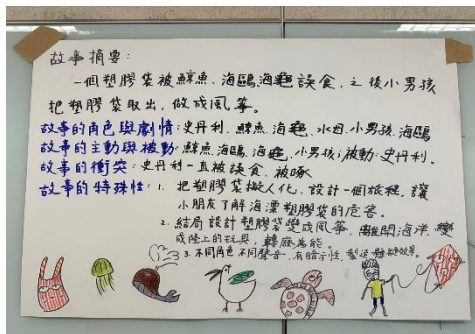 故事摘要:
一個塑膠袋被鯨魚、海鷗、海龜誤食,之後小男孩
把塑膠袋取出,做成風箏。
故事的角色與劇情:史丹利、鯨魚、海龜、水母、小男孩、海鷗
故事的主動與被動:鯨魚、海鷗、海龜、小男孩;被動:史丹利。
故事的衝突:史丹利一直被誤食、被啄
故事的特殊性:1. 把塑膠袋擬人化,設計一個旅程,讓
小朋友了解海漂塑膠袋的危害。
2. 結局設計塑膠袋變成風箏,離開海洋,變
成陸上的玩具,轉廢為能。
3. 不同角色不同聲音,有暗示性,製造懸疑效果。